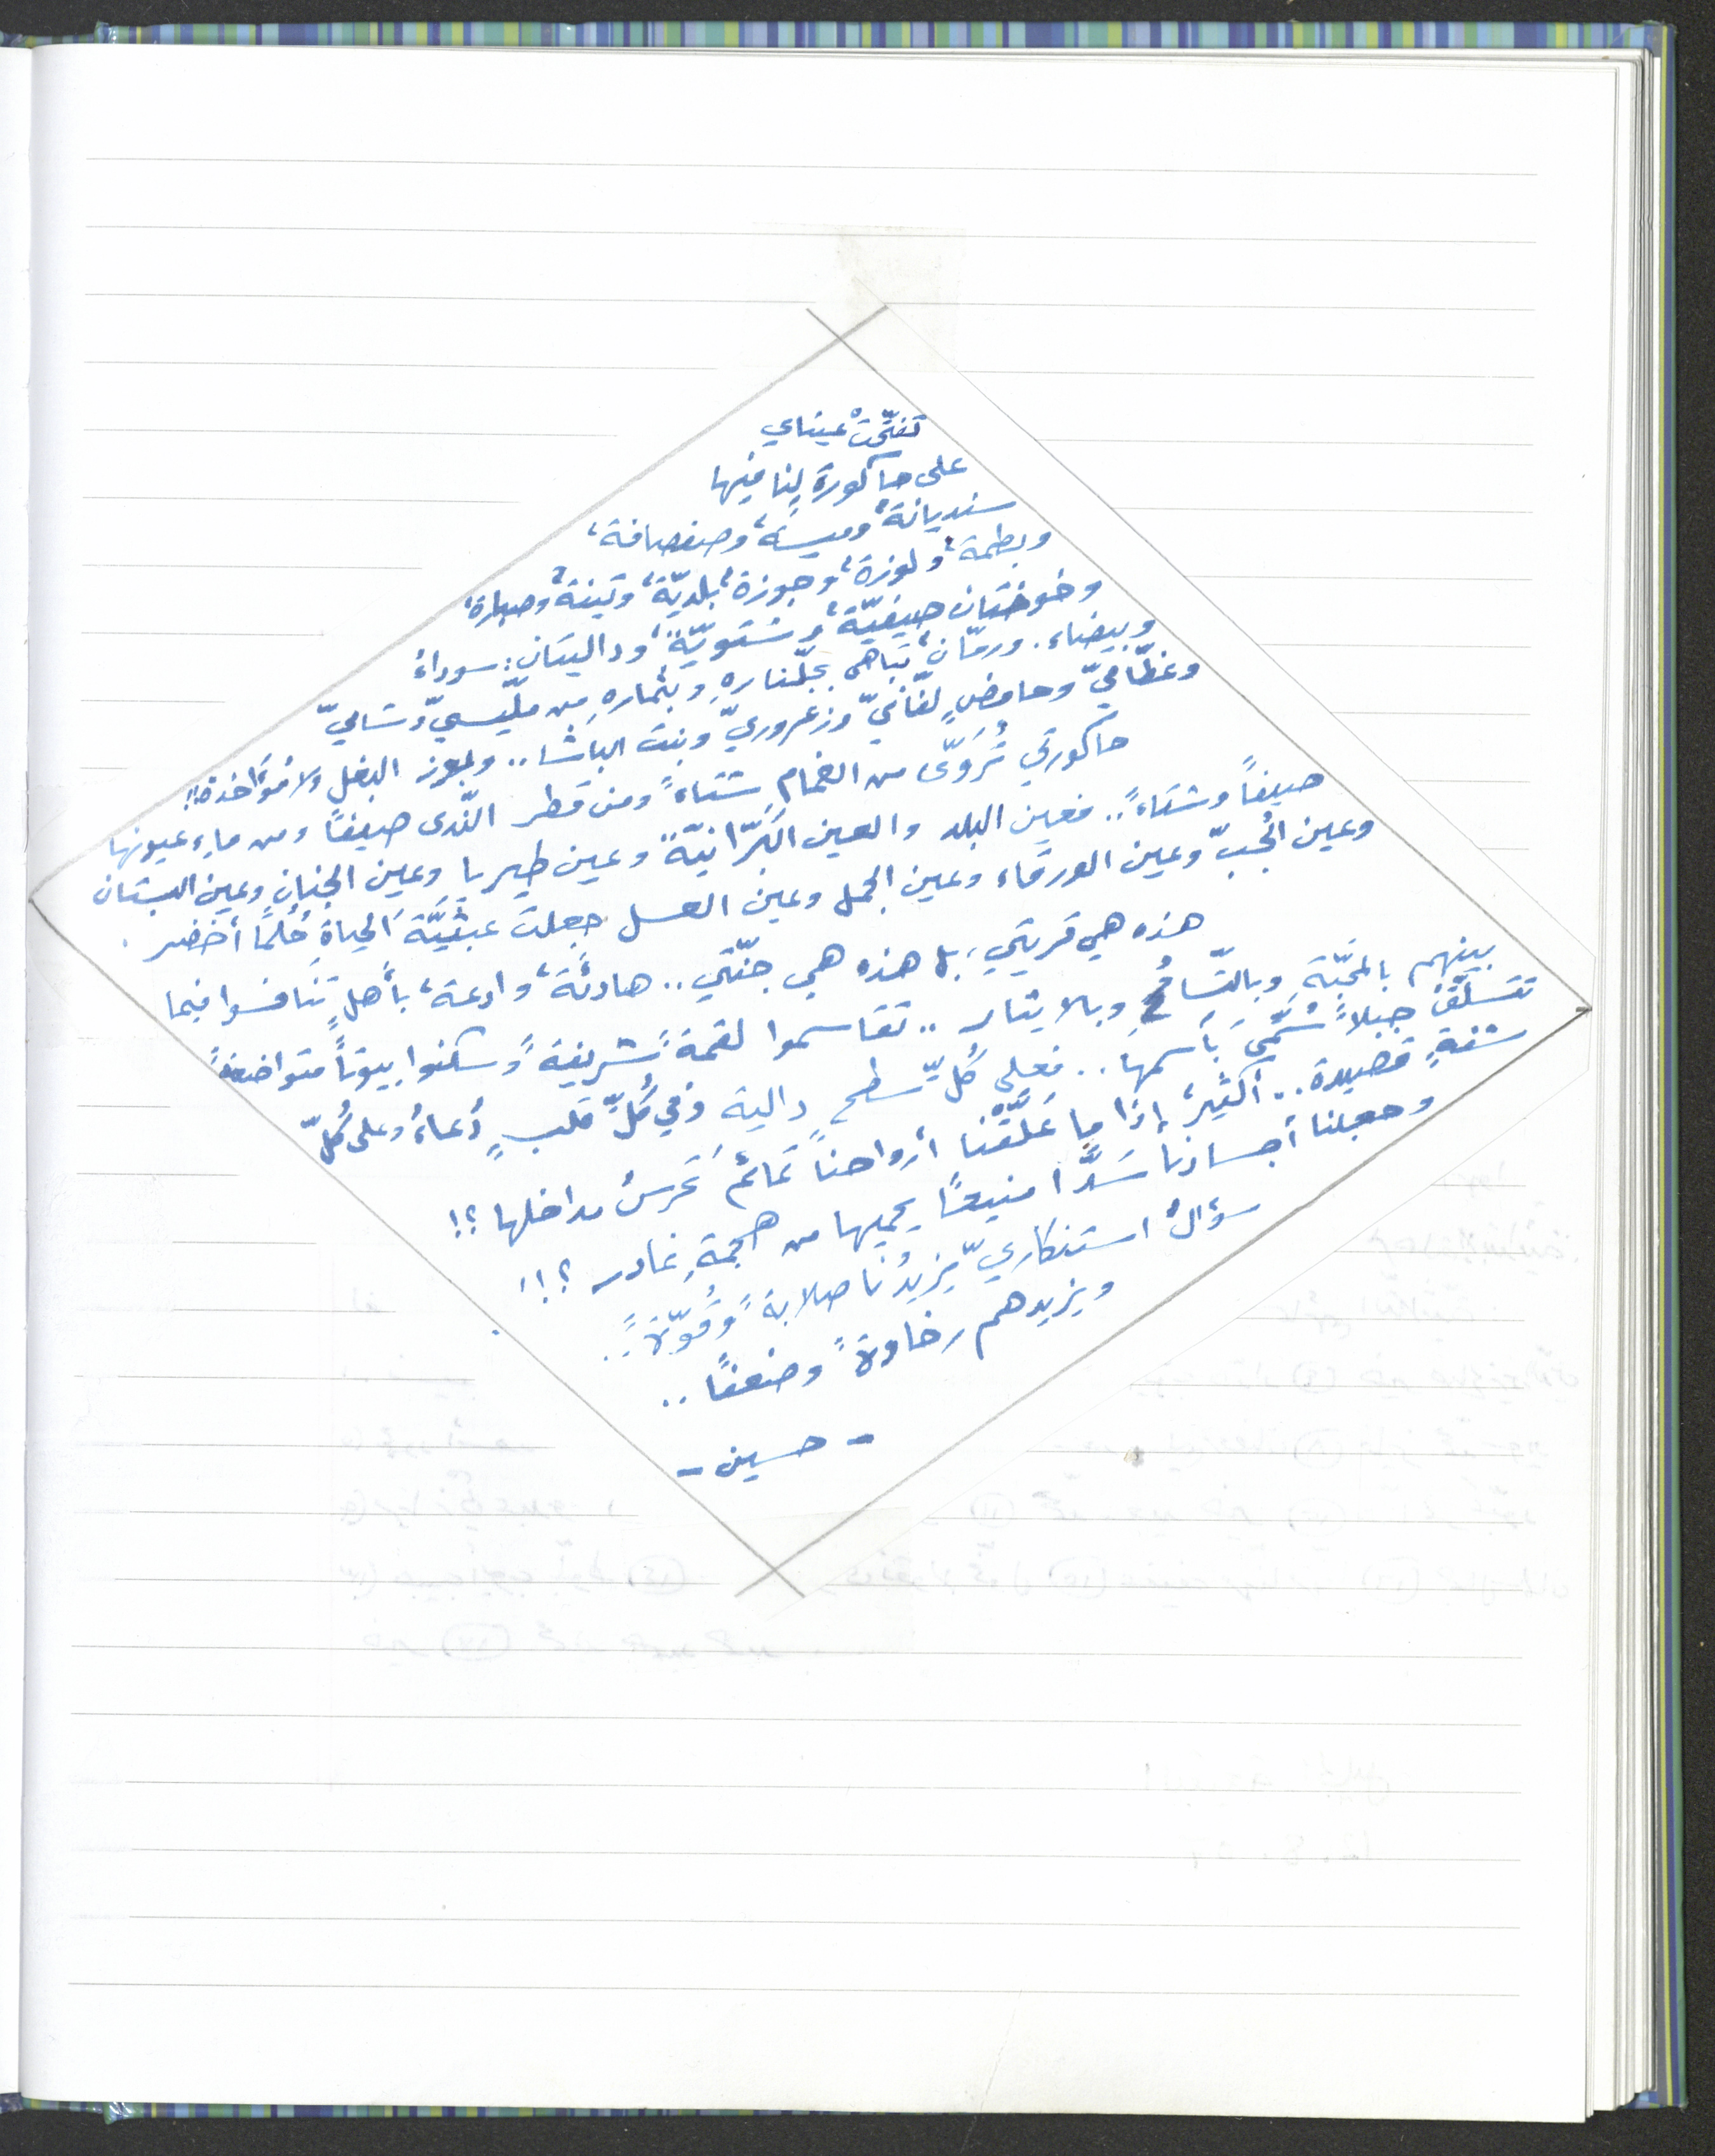 تفتّحتْ عيناي
على حاكورة لنا فيها
سنديانة، وميسة، وصفصافة،
وبطمة، ولوزة، وجوزة، بلديّة، وتينة، وصبارة،
وخوختان صيفيّة، وشتويّة، وداليتان: سوداءُ
وبيضاء. ورمّان، تباهى بجلّنارهِ وبثمارهِ من ملّيسيّ وشاميّ
وغظّاميّ وحامضٍ لفّانيّ وزعروريّ وبنت الباشا.. وبعوز البغل ولا مُؤاخذة!!
حاكورتي تُروّى من الغمام شتاءً ومن قطر النّدى صيفًا ومن ماءِ عيونها
صيفًا وشتاءً.. فعين البلد والعين البَرّانيّة وعين طيريا وعين الجنان وعين البستان
وعين الجُبّ وعين الورقاء وعين الجمل وعين العسل جعلتْ عبثيَّةَ الحياةِ حُلمًا أخضر.
هذه هي قريتي، بل هذه هي جنّتي.. هادئة، وادعة، بأهلٍ تنافسوا فيما
بينهم بالمحبّة وبالتّسامُحِ وبالايثار.. تقاسموا لقمةً شريفةً وسكنوا بيوتًا متواضعةً
تتسلّقُ جبلاً سُمّيَ باسمها.. فعلى كُلّ سطحٍ دالية وفي كُلِّ قلبٍ دُعاءُ وعلى كُلّ
شفةٍ قصيدة.. أكثيرٌ، إذا ما عَلَّقْنا أرواحنا تمائمَ تَحرسُ مداخلها؟!
وجعلنا أجسادنا سَدًّا منيعًا يحميها من هجمةِ غادر؟!!
سؤالٌ استنكاريّ يزيدُنا صلابةً وقُوّةً..
ويزيدهم رخاوةً وضعفًا..
- حسين -